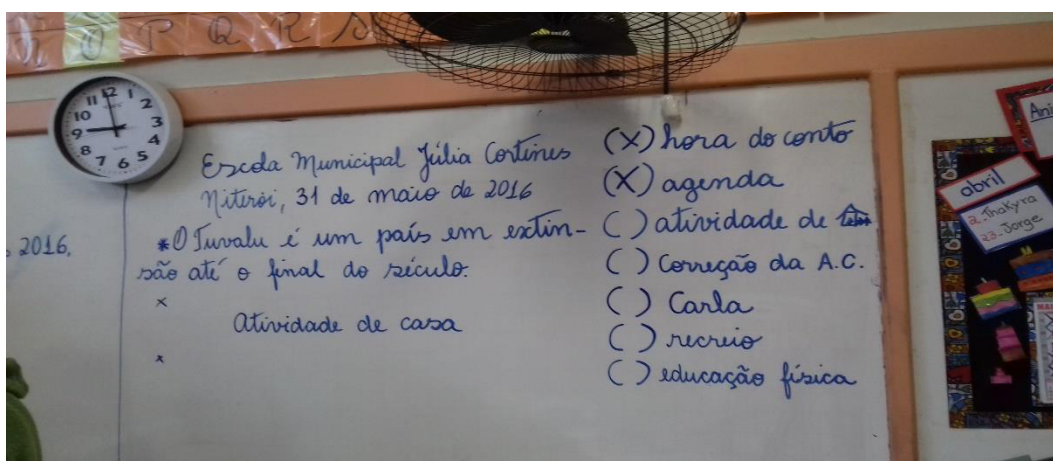 Ñ O P Q R S
12 1 2 3 4 5 6 7 8 9 10 11
2016.
Escola Municipal Júlia Cortines
Niterói, 31 de maio de 2016
*O Tuvalu é um país em extin-
são até o final do século.
x
Atividade de casa
x
(X) hora do conto
(X) agenda
( ) atividade de
( ) Correção da A.C.
( ) Carla
( ) recreio
( ) educação física
Ani
abril
2-Thakyra
23-Jorge